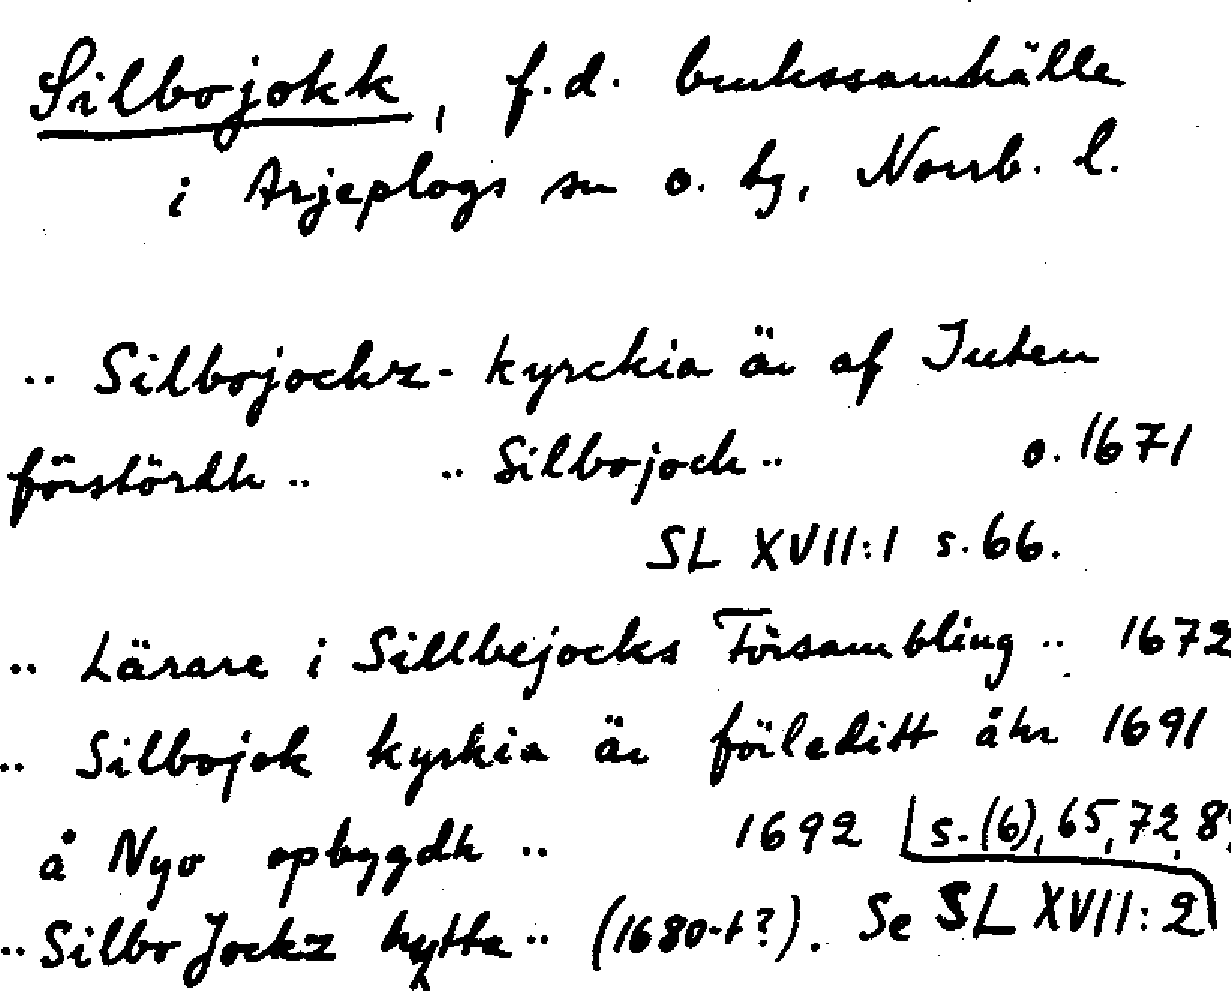 Silbojokk, f.d. brukssamhälle
i Arjeplogs sn o. tg, Norrb. l.
.. Silbojockz-kyrckia är af Juten
förstördh .. .. Silbojock .. o. 1671
SL XVII:1 s. 66.
.. Lärare i Sillbejocks Försambling .. 1672
.. Silbojok kyrkia är förleditt åhr 1691
å Nyo opbygdh .. 1692 s. (6), 65, 72,
.. Silbo Jockz hytta .. (1680-t?). Se SL XVII:2